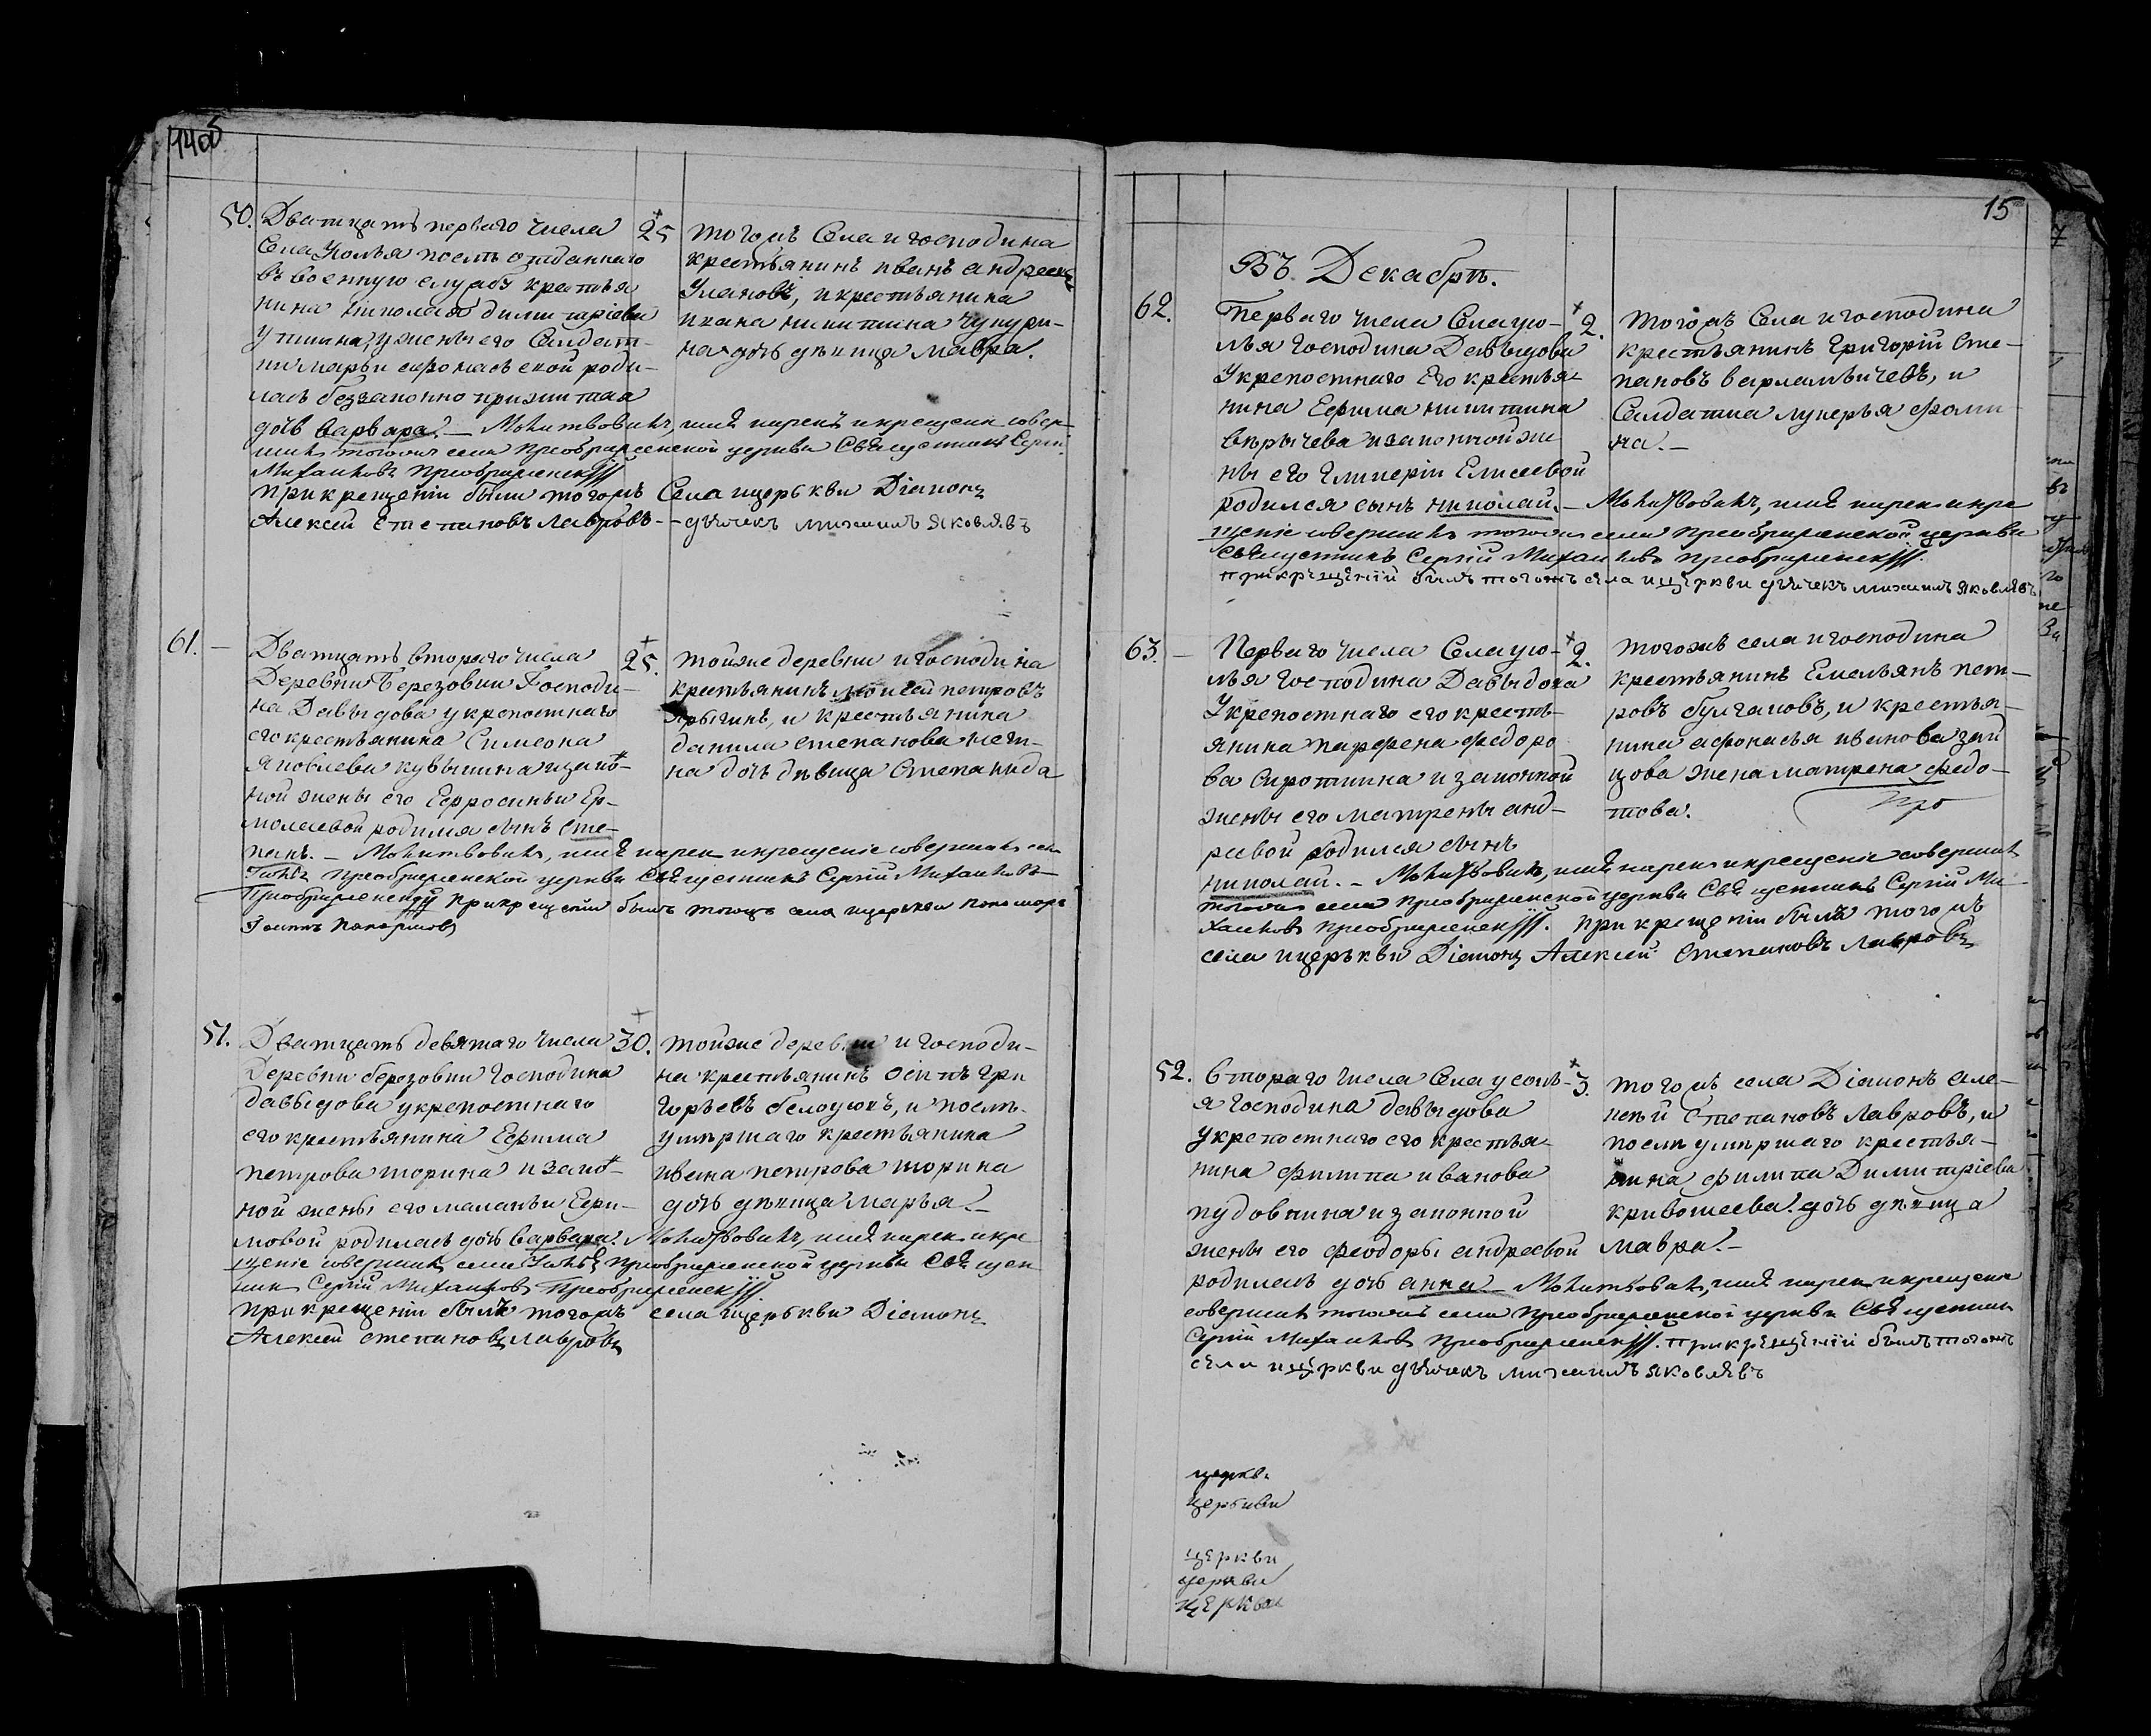 50. Дватцать перваго числа
села Усолья послѣ отданнаго
въ военную службу крестья
нина Николая Димитріева
у жены его солдат-
ки Марьи Афонасьевой роди-
лась беззаконно прижитая
дочь Варвара. – Молитвовалъ, имя нарекъ и крещеніе совер-
шилъ тогожъ села Преображенской церкви Священникъ Сергій
Михайловъ Преображенскій
При крещеніи были тогожъ села и церькви Діаконъ
Алексей Степановъ Лавровъ – дьячекъ михаилъ яковлевъ
25 тогожъ села и господина
крестьянинъ Иванъ Андреевъ
Улановъ, и крестьянина
Ивана Никитина Чукури-
на дочь дѣвица Мавра.
61. – Дватцать втораго числа
Деревни Березовки Господи-
на Давыдова у крепостнаго
его крестьянина Симеона
Яковлева кувшина и закон-
ной жены его Ефросиньи Ер-
молаевой родился сынъ Сте-
панъ. – Молитвовалъ, имя нарекъ и крещеніе совершилъ села
Преображенской церкви Священникъ Сергій Михайловъ
Преображенскій При крещеніи былъ тогожъ села и церькви пономарь
25. тойже деревни и господина
крестьянинъ Моисей Петровъ
Ярыгинъ, и крестьянина
данила степанова
на дочь дѣвица Степанида
51. Дватцать девятаго числа
Деревни березовки Господина
давыдова у крепостнаго
его крестьянина Ефима
петрова шорина и закон-
ной жены его маланьи Ефи-
мовой родилась дочь Варвара. Молитвовалъ, имя нарекъ и кре
щеніе совершилъ села Преображенской церкви Священ
никъ Сергій Михайловъ Преображенскій
При крещеніи былъ тогожъ села и церькви Діаконъ
Алексей степановъ Лавровъ
30. тойже деревни и господи-
на крестьянинъ осипъ гри
горьевъ белоусовъ, и послѣ
умѣршаго крестьянина
ивана петрова шорина
дочь дѣвица Марья. –
15
Въ Декабрѣ.
62. Перваго числа Села усо-
лья Господина Давыдова
У крепостнаго Его крестья-
нина Ефима никитина
и законной же
ны его Гликеріи Елисеевой
родился сынъ николай. – Молитвовалъ, имя нарекъ и кре
щеніе совершилъ тогожъ села Преображенской церкви
Священникъ Сергій Михайловъ Преображенскій.
При крещеніи былъ тогожъ села и церкви дьячекъ михаилъ яковлевъ
2. тогожъ Села и господина
крестьянинъ Григорій Сте-
пановъ варламьичевъ, и
Солдатка лукерья фоми
на. –
63. – Перваго числа Села усо-
лья Господина Давыдова
У крепостнаго его кресть-
янина парфена федоро
ва Сиротина и законной
жены его матрены анд-
реевой родился сынъ
николай. – Молитвовалъ, имя нарекъ и крещеніе совершилъ
тогожъ села Преображенской церкви Священникъ Сергій Ми-
хайловъ Преображенскій. При крещеніи былъ тогожъ
села и церькви Діаконъ Алексей Степановъ Лавровъ
2. тогожъ села и господина
крестьянинъ Емельянъ пет-
ровъ булгаковъ, и крестья-
нина афонасья иванова зай
цова жена матрена федо-
това.
52. Втораго числа Села усоль-
я Господина давыдова
у крепостнаго его крестья-
нина филипа иванова
пудовкина и законной
жены его феодоры андреевой
родилась дочь анна – Молитвовалъ, имя нарекъ и крещеніе
совершилъ тогожъ села Преображенской церкви Священникъ
Сергій Михайловъ Преображенскій. При крещеніи былъ тогожъ
села и церкви дьячекъ михаилъ яковлевъ
3. тогожъ села Діаконъ але-
ксѣй Степановъ Лавровъ, и
послѣ умѣршаго крестья-
нина филипа Димитріева
кривошеева дочь дѣвица
мавра. –
церкви
церькви
церкви
церкви
церкви